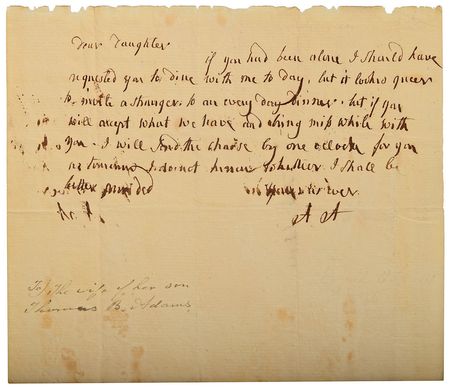 Dear Daughter
if you had been alone I should have
requested you to dine with me to day, but it looks queer
to invite a stranger, to an every day Dinner - but if you
will accept what we have and bring miss while with
you - I will send the chaise by one oclock for you
as tomorrow I do not know whether I shall be
better provided
yours ever
A A
To the wife of her son
Thomas B. Adams